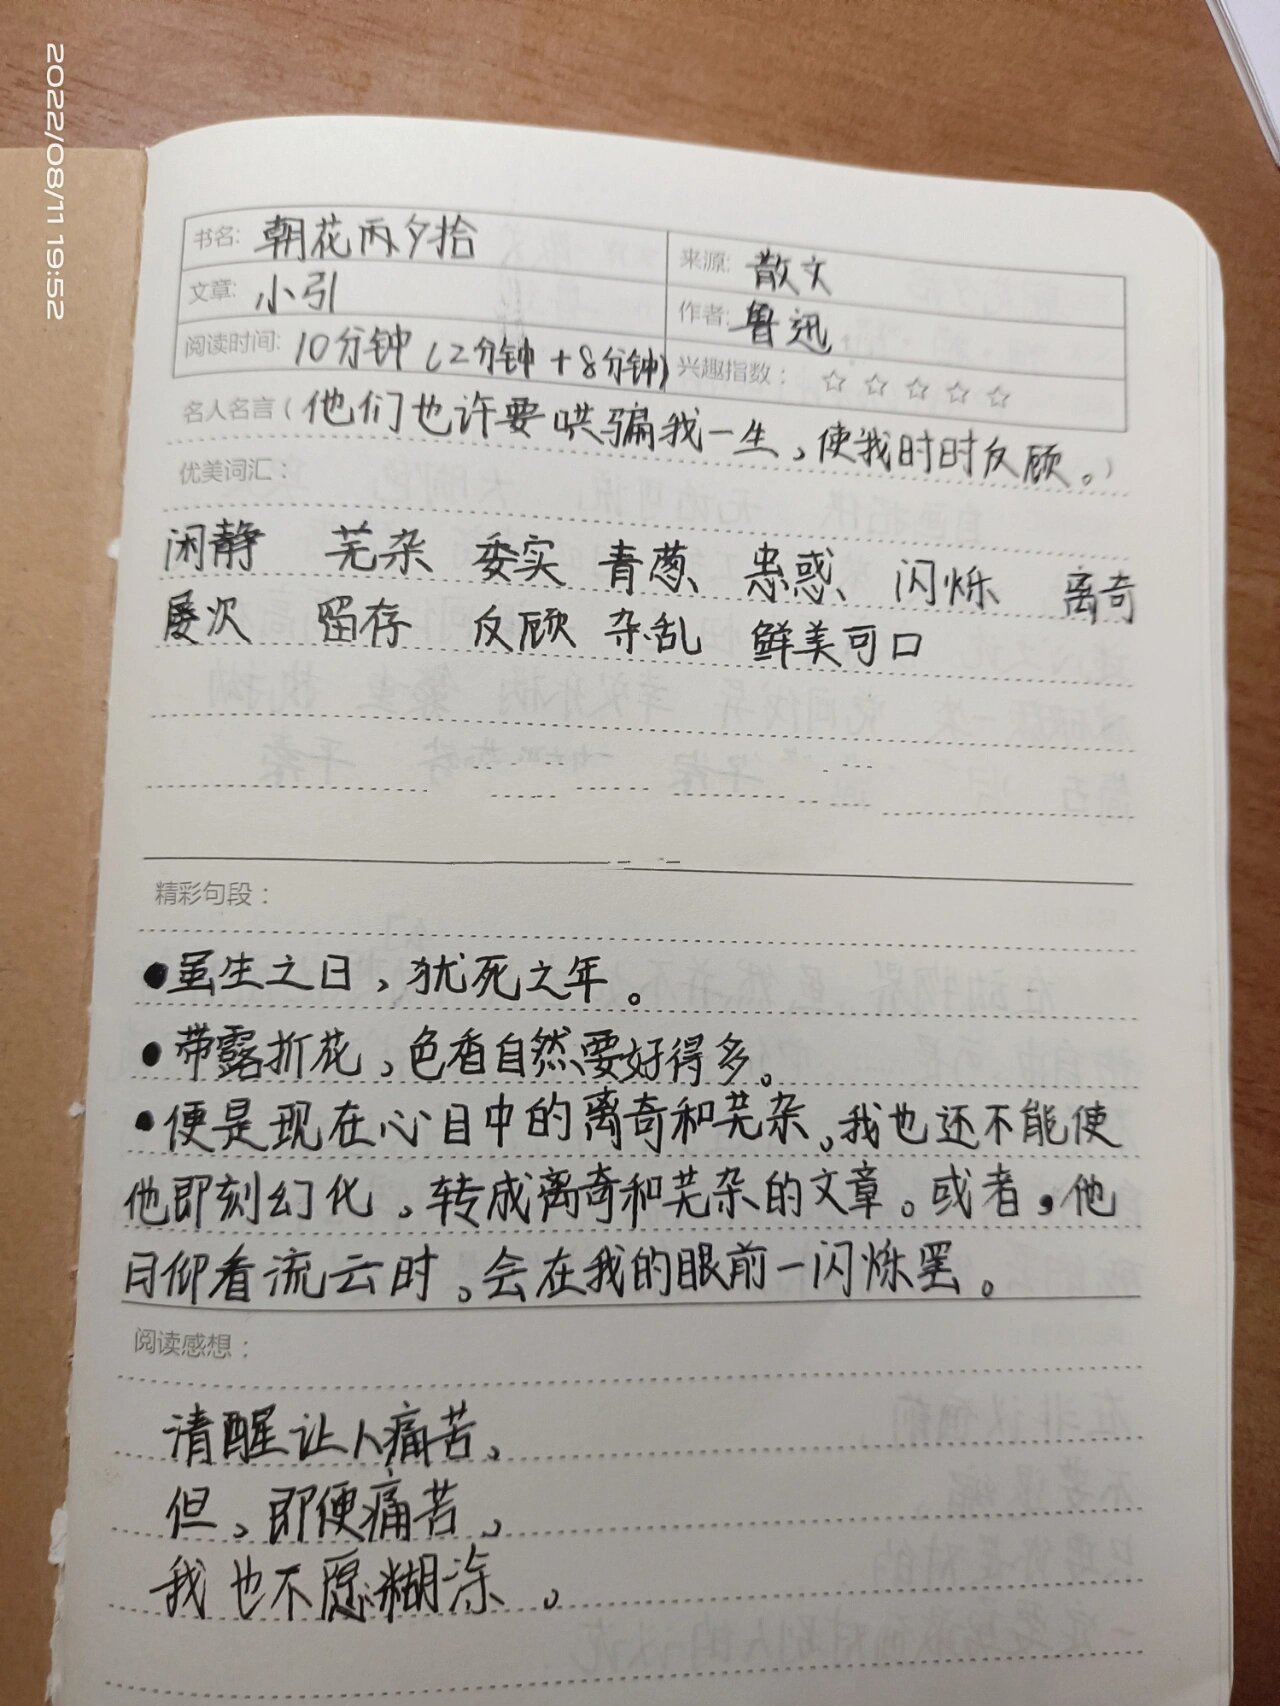 2022/08/11 19:52
书名: 朝花两夕拾 来源: 散文
文章: 小引 作者: 鲁迅
阅读时间: 10分钟 (2分钟 + 8分钟) 兴趣指数: ☆ ☆ ☆ ☆ ☆
名人名言 (他们也许要哄骗我一生,使我时时反顾。)
优美词汇:
闲静 芜杂 委实 青葱 蛊惑 闪烁 离奇
屡次 留存 反顾 杂乱 鲜美可口
精彩句段:
●虽生之日,犹死之年。
●带露折花,色香自然要好得多。
●便是现在心目中的离奇和芜杂。我也还不能使
他即刻幻化。转成离奇和芜杂的文章。或者,他
日仰看流云时。会在我的眼前一闪烁罢。
阅读感想:
清醒让人痛苦,
但,即便痛苦,
我也不愿糊涂。